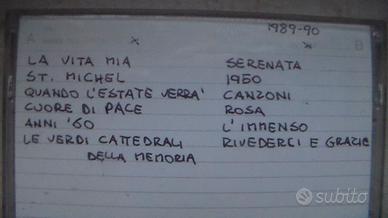 1989-90
A B
x x
LA VITA MIA
ST. MICHEL
QUANDO L'ESTATE VERRA'
CUORE DI PACE
ANNI '60
LE VERDI CATTEDRALI
DELLA MEMORIA
SERENATA
1950
CANZONI
ROSA
L'IMMENSO
RIVEDERCI E GRAZIE
subito